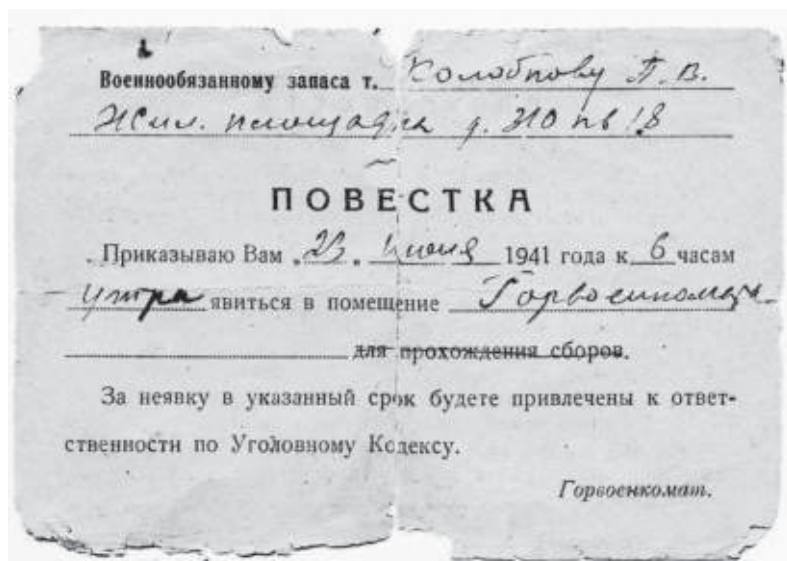 Военнообязанному запаса т. Колобкову П. В.
Жил. площадка д. №10 кв 18
ПОВЕСТКА
Приказываю Вам „23“ июня 1941 года к 6 часам
утра явиться в помещение Горвоенкомата
для прохождения сборов.
За неявку в указанный срок будете привлечены к ответ-
ственности по Уголовному Кодексу.
Горвоенкомат.